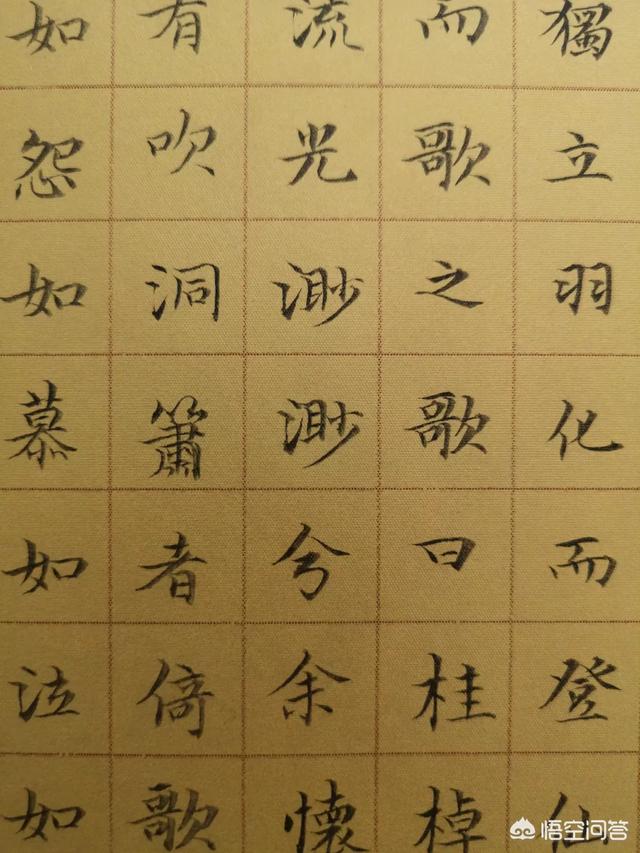 獨立羽化而登仙
而歌之歌曰桂棹
流光渺渺兮余懷
有吹洞簫者倚歌
如怨如慕如泣如
悟空问答